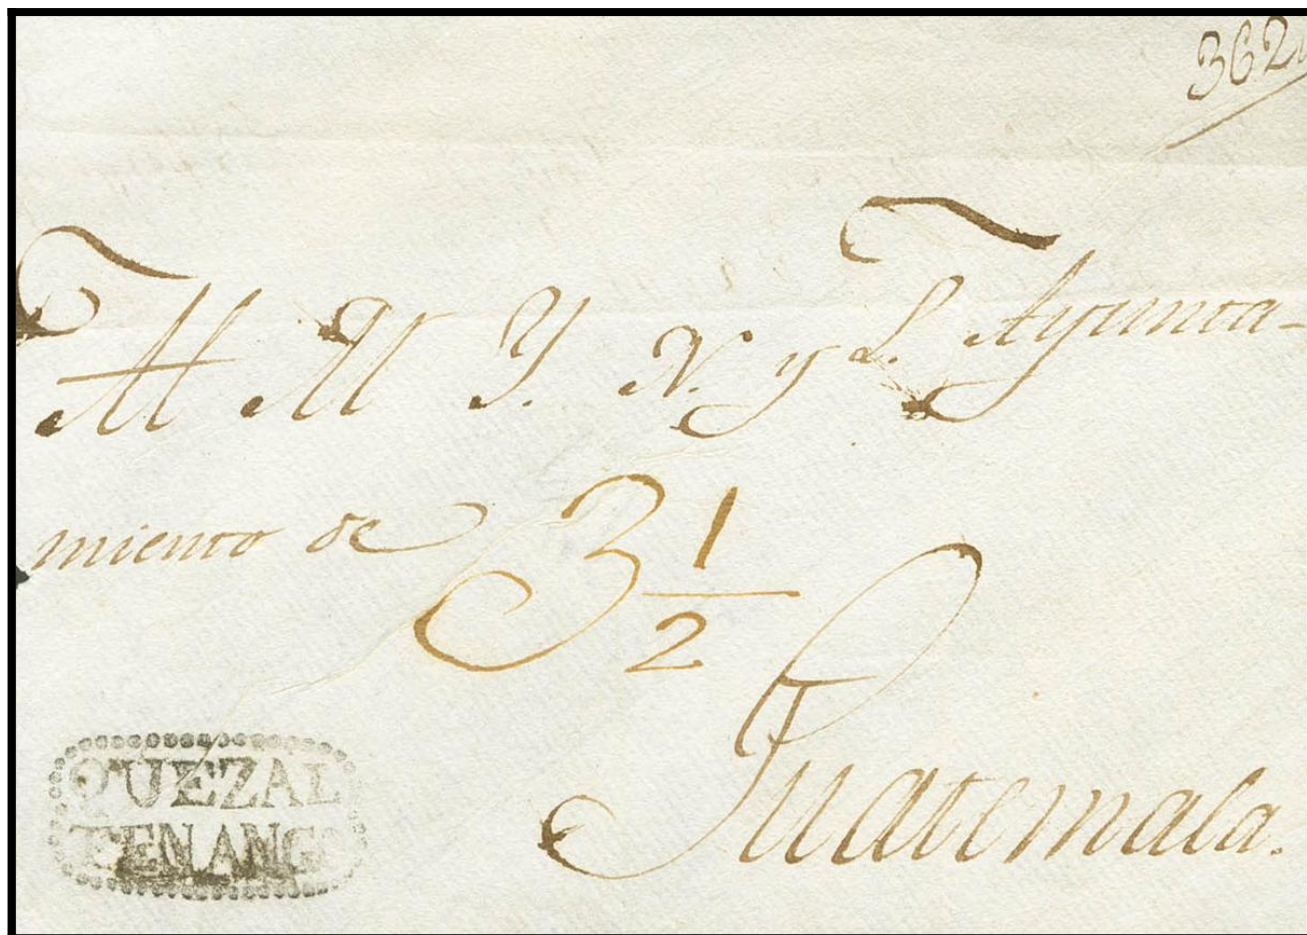 362
Al M Y. N. y L. Ayunta-
miento de
3 1/2
Guatemala.
QUEZAL
TENANGO